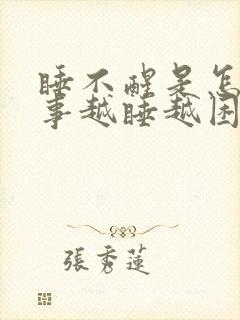 睡不醒是怎
事越睡越困
張秀蓮